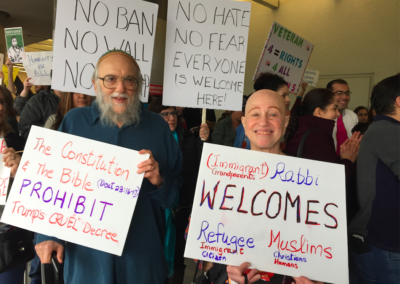 NO BAN
NO WALL
NO
NO HATE
NO FEAR
EVERYONE
IS WELCOME
HERE!
VETERAN
4 = RIGHTS
4 ALL
The Constitution
& The Bible (Deut 23:16-17)
PROHIBIT
Trump's CRUEL Decree
(Immigrant) Rabbi
Grandparents
WELCOMES
Refugee Muslims
Immigrant Christians
Citizen Humans